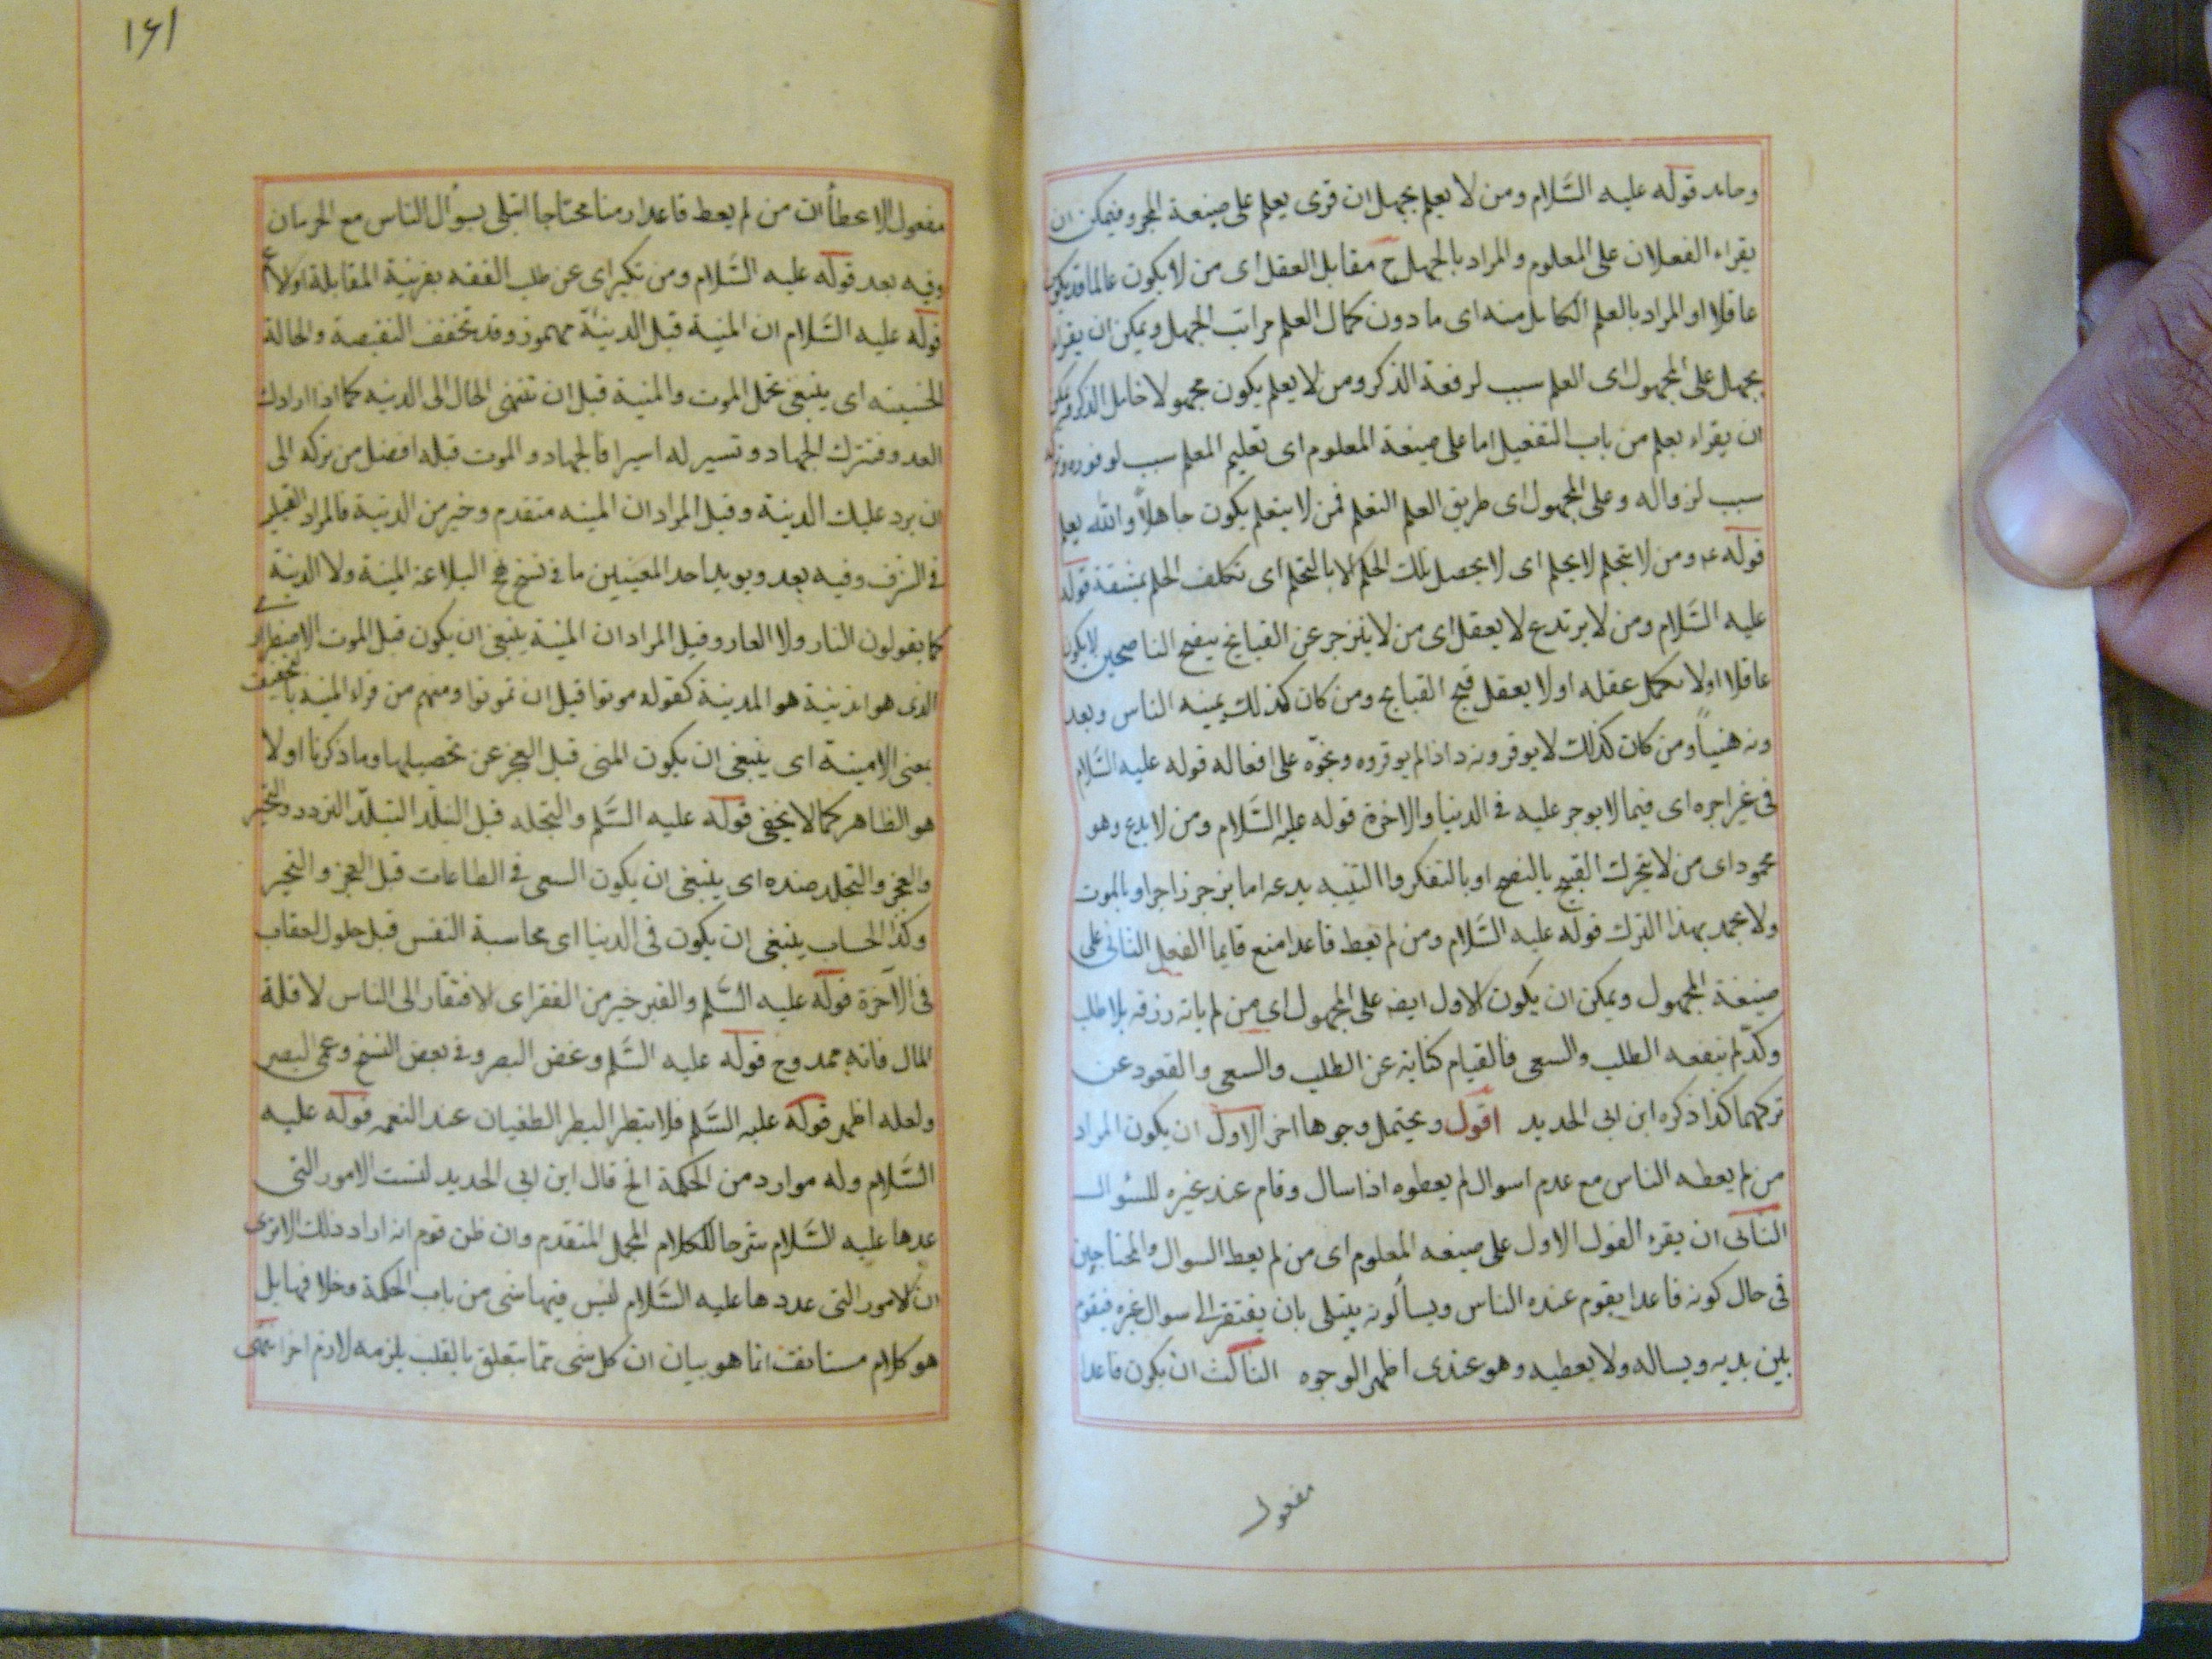 وحامد قوله عليه السَّلام ومن لا يعلم يجهل ان قرى يعلم على صيغة المجرد فيمكن ان
يقراء الفعلان على المعلوم والمراد بالجهل ح مقابل العقل اى من لا يكون عالما قد يكون
عاقلا او المراد بالعلم الكامل منه اى ما دون كمال العلم مراتب الجهل ويمكن ان يقراء
يجهل على المجهول اى العلم سبب لرفعة الذكر ومن لا يعلم يكون مجهولا خامل الذكر ويمكن
ان يقراء يعلم من باب التفعيل اما على صيغة المعلوم اى تعليم المعلم سبب لوفوره وتركه
سبب لزواله وعلى المجهول اى طريق العلم التعلم فمن لا يتعلم يكون جاهلاً والله يعلم
قوله ع ومن لا يتحلم لا يحلم اى لا يحصل ملك الحلم الا بالتحلم اى تكلف الحلم بمشقة قوله
عليه السَّلام ومن لا يرتدع لا يعقل اى من لا ينزجر عن القبايح بنصح الناصحين لا يكون
عاقلا اولا يكمل عقله اولا يعقل قبح القبايح ومن كان كذلك يهينه الناس ويعد
ونه هنيباً ومن كان كذلك لا يوقرونه دا اذا لم يوقروه ويخوّه على افعاله قوله عليه السَّلام
فى غير اجره اى فيما لا يوجر عليه فى الدنيا والاخرة قوله عليه السَّلام ومن لا يدع وهو
محمود اى من لا يترك القبيح بالنصح او بالتفكر واالتنبيه يدعه اما بزجر زاجر او بالموت
ولا يحمد بهذا الترك قوله عليه السَّلام ومن لم يعط قاعدا منع قايما الفعل الثانى على
صيغة المجهول ويمكن ان يكون الاول ايضا على المجهول اى من لم ياته رزقه بلا طلب
وكدّ لم ينفعه الطلب والسعى فالقيام كناية عن الطلب والسعى والقعود عن
تركهما كذا ذكره ابن ابى الحديد اقول ويحتمل وجوها اخر الاول ان يكون المراد
من لم يعطه الناس مع عدم اسوال لم يعطوه اذا سال وقام عند غيره للسئوال
الثانى ان يقرء الفول الاول على صيغه المعلوم اى من لم يعط السوال والمحتاجين
فى حال كونه قاعدا يقوم عنده الناس ويسألونه يبتلى بان يفتقر الى سوال غيره فيقوم
بين يديه ويساله ولا يعطيه وهو عندى اظهر الوجوه الثالث ان يكون قاعدا
مفعول
١٦١
مفعول الاعطأ ان من لم يعط قاعدا زمنا محتاجا ابتلى بسوال الناس مع الحرمان
وفيه بعد قوله عليه السَّلام ومن تكبر اى عن طلب الفقه بقرينة المقابلة اولا
قوله عليه السَّلام ان المنية قبل الدنيئة مهموز وقد تخفف النقيصة والحالة
الخسيسه اى ينبغى تحمل الموت والمنية قبل ان تنتهى الحال الى الدنيه كما اذا ارادك
العدو فتترك الجهاد وتسير له اسيرا فالجهاد والموت قبله افضل من تركه الى
ان يرد عليك الدنية وقيل المراد ان المنيه متقدم وخير من الدنية فالمراد القبلية
فى الشرف وفيه بعد ويويد احد المعنيين ما فى نسخ نهج البلاغة المنية ولا الدنية
كما يقولون النار ولا العار وقيل المراد ان المنية ينبغى ان يكون قبل الموت الاضطرارى
الذى هو الدنية هو المدينة كقوله موتوا قبل ان تموتوا ومنهم من قراء المنية بالتخفيف
بمعنى الامينة اى ينبغى ان يكون المنى قبل العجز عن تحصيلها وما ذكرنا اولا
هو الظاهر كما لا يخفى قوله عليه السَّلم والتجلد قبل التبلّد التبلّد التردد والتحير
والعجز والتجلد ضده اى ينبغى ان يكون السعى فى الطاعات قبل العجز والتحير
وكذا الحساب ينبغى ان يكون فى الدنيا اى محاسبة النفس قبل حلول العقاب
فى الآخرة قوله عليه السَّلم والقبر خير من الفقر اى الافتقار الى الناس لا قلة
المال فانه ممدوح قوله عليه السَّلم وغض البصر وفى بعض النسخ وعمى البصر
ولعله اظهر قوله عليه السَّلم فلا تبطر البطر الطغيان عند النعمه قوله عليه
السَّلام وله موارد من الحكمة الخ قال ابن ابى الحديد ليست الامور التى
عدها عليه السَّلام شرحا للكلام المجمل المتقدم وان ظن قوم انه اراد ذلك الا ترى
ان الامور التى عددها عليه السَّلام ليس فيها شى من باب الحكمة وخلافها بل
هو كلام مستانف انما هو بيان ان كل شى مما يتعلق بالقلب يلزمه لازم اخر انتهى